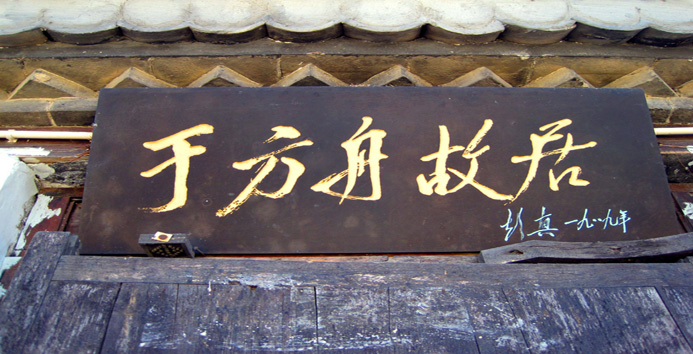 于方舟故居
彭真 一九八九年